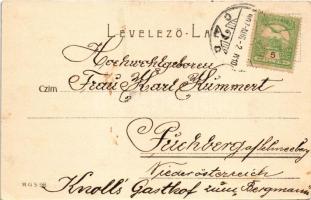 LEVELEZŐ-LA
5
Hochwohlgeboren
Czim Frau Karl Kummert
Puchberg a/Schneeberg
Niederösterreich
Knolls Gasthof zum Bergmann